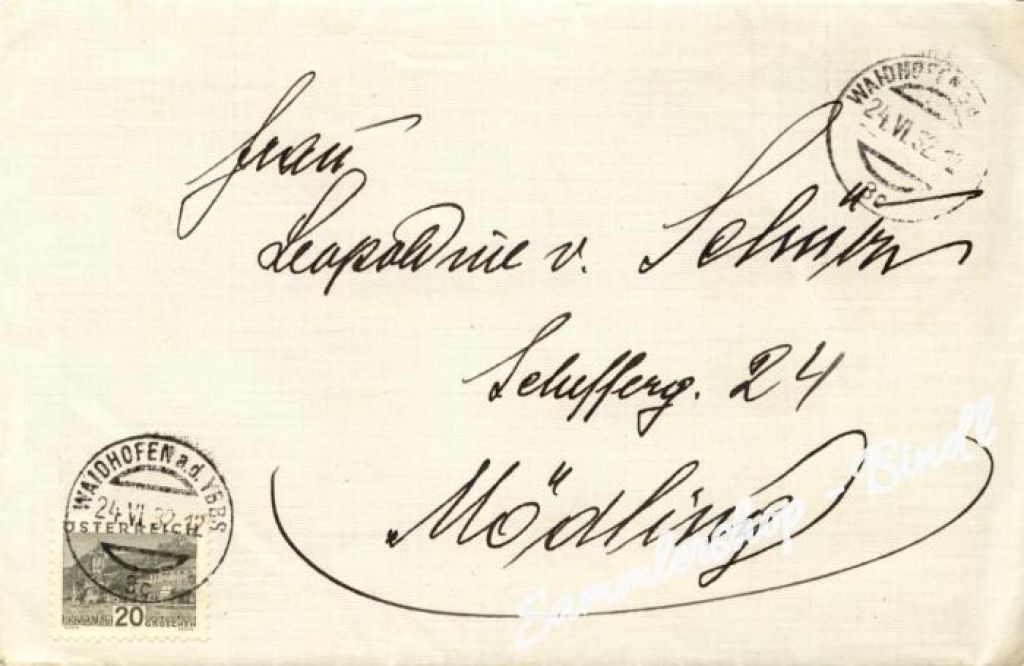 WAIDHOFEN a.d.
24.VI.32.12
8c
Frau
Leopoldine v.
Schefferg. 24
Mödling
WAIDHOFEN a.d. YBBS
24.VI.32.12
ÖSTERREICH
8c
20
GROSCHEN
Sammlershop - Bindl